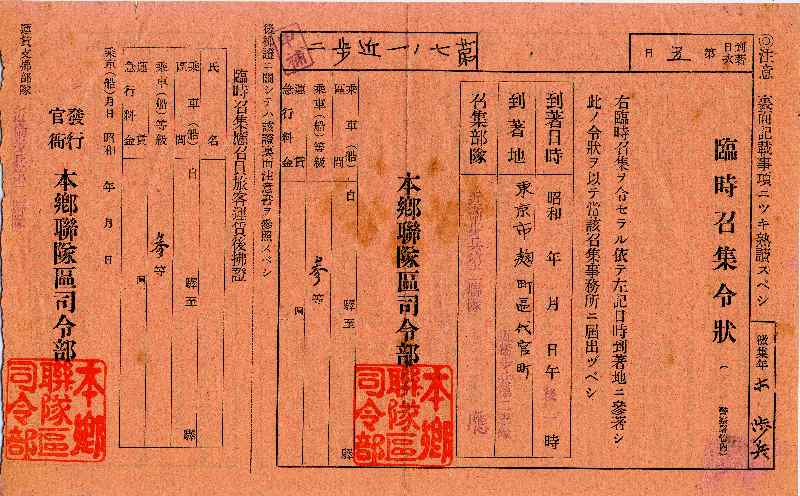 ◎注意 裏面記載事項ニツキ熟読スベシ
徴集年
歩兵
臨時召集令狀
(警察署管内)
右臨時召集ヲ令セラル依テ左記日時到著地ニ參著シ
此ノ令狀ヲ以テ當該召集事務所ニ届出ツベシ
到著日時 昭和 年 月 日午後 時
到著地 東京市麹町區代官町
召集部隊
到著日次 第五日
第七ノ一近步二
甲補
本鄉聯隊區司令部
本鄉聯隊區司令部
乘車(船)區間 自 驛至 驛 間
乘車(船)等級 參等
運賃
急行料金
後拂證ニ關シテハ該證裏面注意書ヲ參照スベシ
臨時召集應召員旅客運賃後拂證
氏名
乘車(船)區間 自 驛至 驛 間
乘車(船)等級 參等
運賃
急行料金
乘車(船)月日 昭和 年 月 日
發行官衙 本鄉聯隊區司令部
本鄉聯隊區司令部
運賃支拂部隊